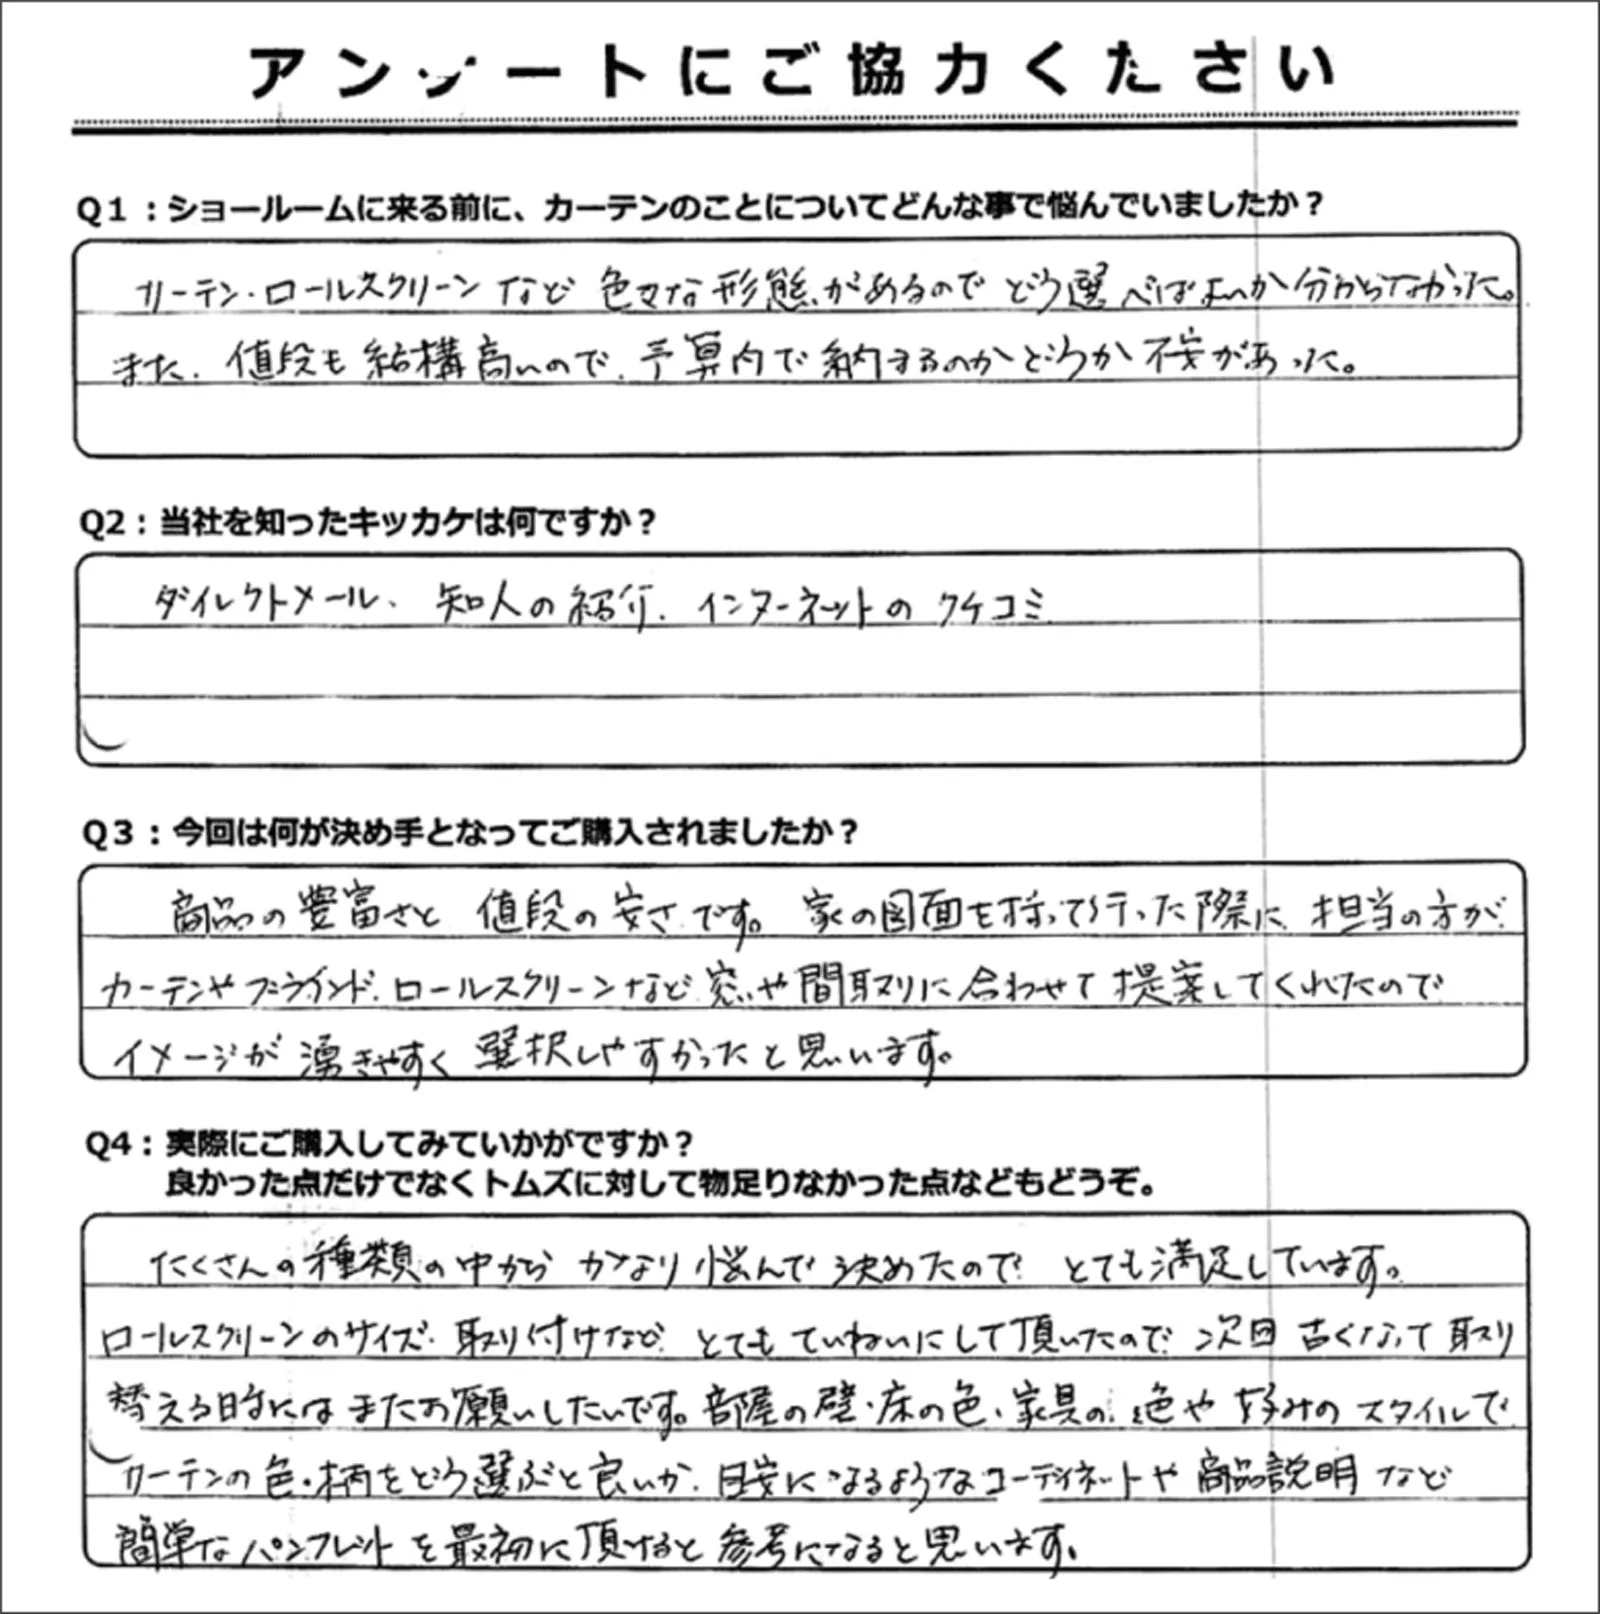 アンケートにご協力ください
Q1：ショールームに来る前に、カーテンのことについてどんな事で悩んでいましたか？
カーテン・ロールスクリーンなど 色々な形態があるのでどう選べばよいか分からなかった。
また、値段も結構高いので、予算内で納まるのかどうか不安があった。
Q2：当社を知ったキッカケは何ですか？
ダイレクトメール、知人の紹介、インターネットのクチコミ
Q3：今回は何が決め手となってご購入されましたか？
商品の豊富さと 値段の安さです。家の図面を持って行った際に、担当の方が
カーテンやブラインド、ロールスクリーンなど、窓や間取りに合わせて提案してくれたので
イメージが湧きやすく 選択しやすかったと思います。
Q4：実際にご購入してみていかがですか？
良かった点だけでなくトムズに対して物足りなかった点などもどうぞ。
たくさんの種類の中から かなり悩んで決めたので とても満足しています。
ロールスクリーンのサイズ・取り付けなど とても ていねいにして頂いたので 次回 古くなって取り
替える時にはまたお願いしたいです。部屋の壁・床の色・家具の色や好みのスタイルで
カーテンの色・柄をどう選ぶと良いか、目安になるようなコーディネートや商品説明など
簡単なパンフレットを最初に頂けると参考になると思います。